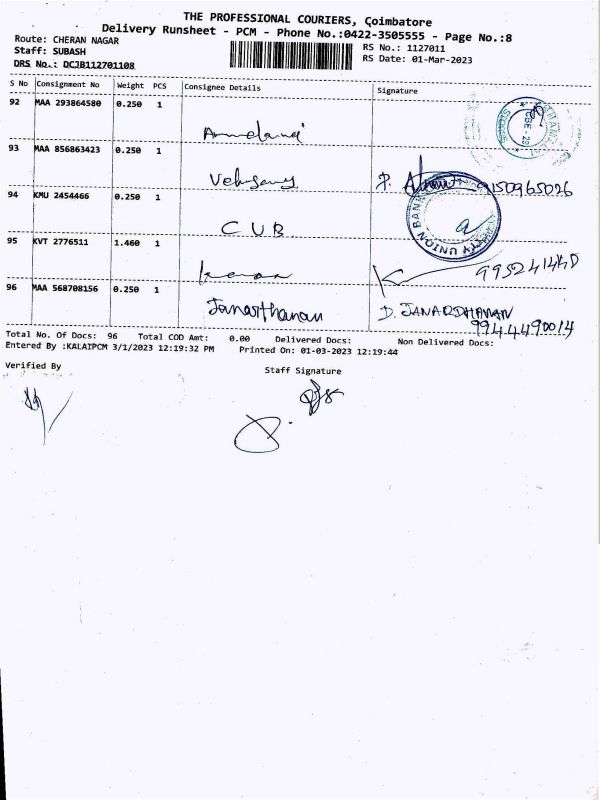 THE PROFESSIONAL COURIERS, Çoimbatore
Delivery Runsheet - PCM - Phone No.:0422-3505555 - Page No.:8
Route: CHERAN NAGAR
RS No.: 1127011
Staff: SUBASH
RS Date: 01-Mar-2023
DRS No.: DCJB112701108
S No Consignment No Weight PCS Consignee Details Signature
92 MAA 293864580 0.250 1
93 MAA 856863423 0.250 1
94 KMU 2454466 0.250 1
CUB
CITY UNION BANK
95 KVT 2776511 1.460 1
96 MAA 568708156 0.250 1
Janarthanan D. JANARDHANAN
9944490014
Total No. Of Docs: 96 Total COD Amt: 0.00 Delivered Docs: Non Delivered Docs:
Entered By :KALAIPCM 3/1/2023 12:19:32 PM Printed On: 01-03-2023 12:19:44
Verified By
Staff Signature